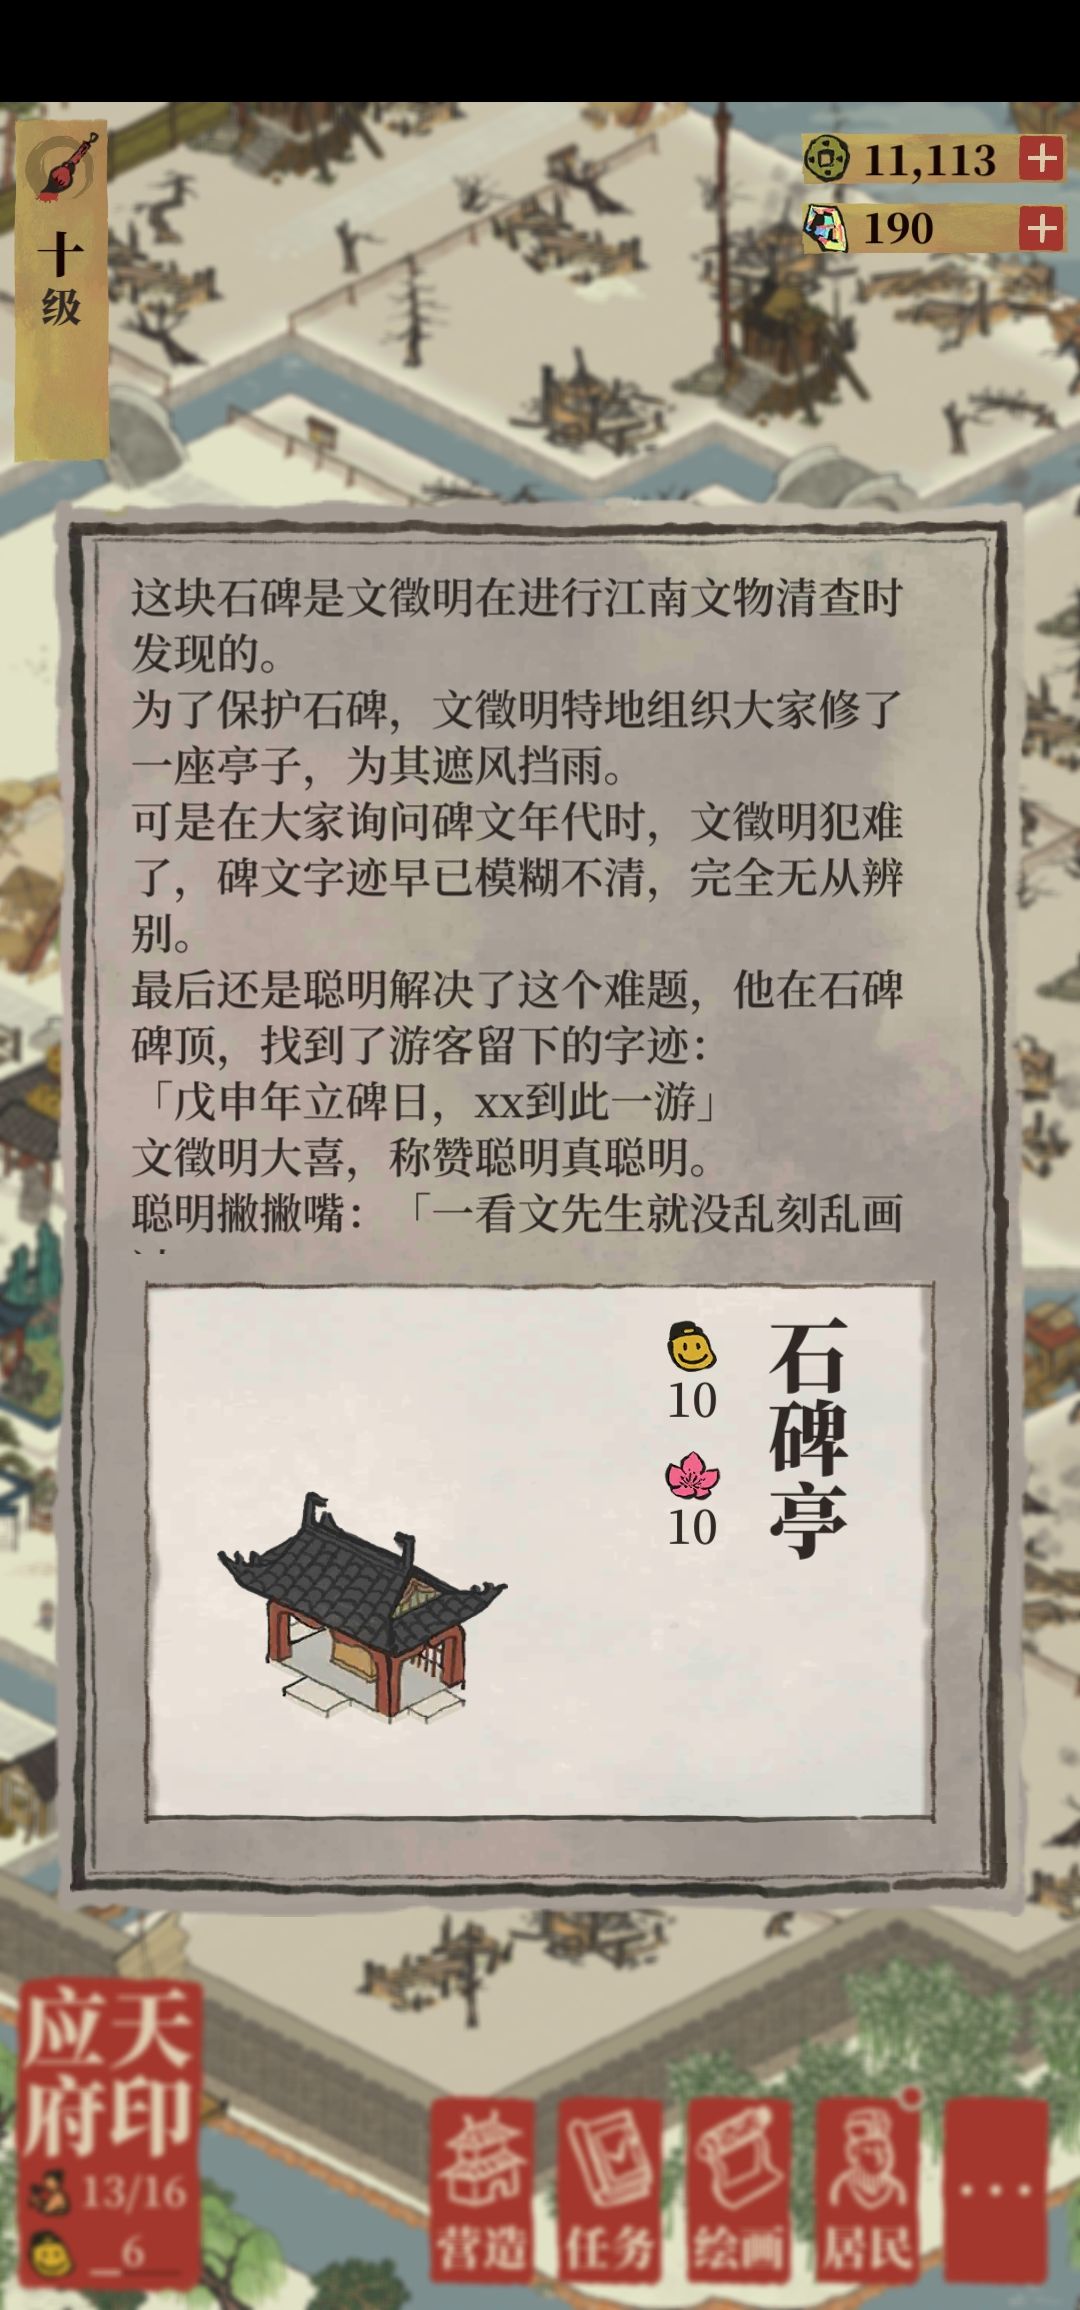 十
级
11,113
190
这块石碑是文徵明在进行江南文物清查时
发现的。
为了保护石碑，文徵明特地组织大家修了
一座亭子，为其遮风挡雨。
可是在大家询问碑文年代时，文徵明犯难
了，碑文字迹早已模糊不清，完全无从辨
别。
最后还是聪明解决了这个难题，他在石碑
碑顶，找到了游客留下的字迹：
「戊申年立碑日，xx到此一游」
文徵明大喜，称赞聪明真聪明。
聪明撇撇嘴：「一看文先生就没乱刻乱画
石碑亭
10
10
应天
府印
13/16
6
营造
任务
绘画
居民